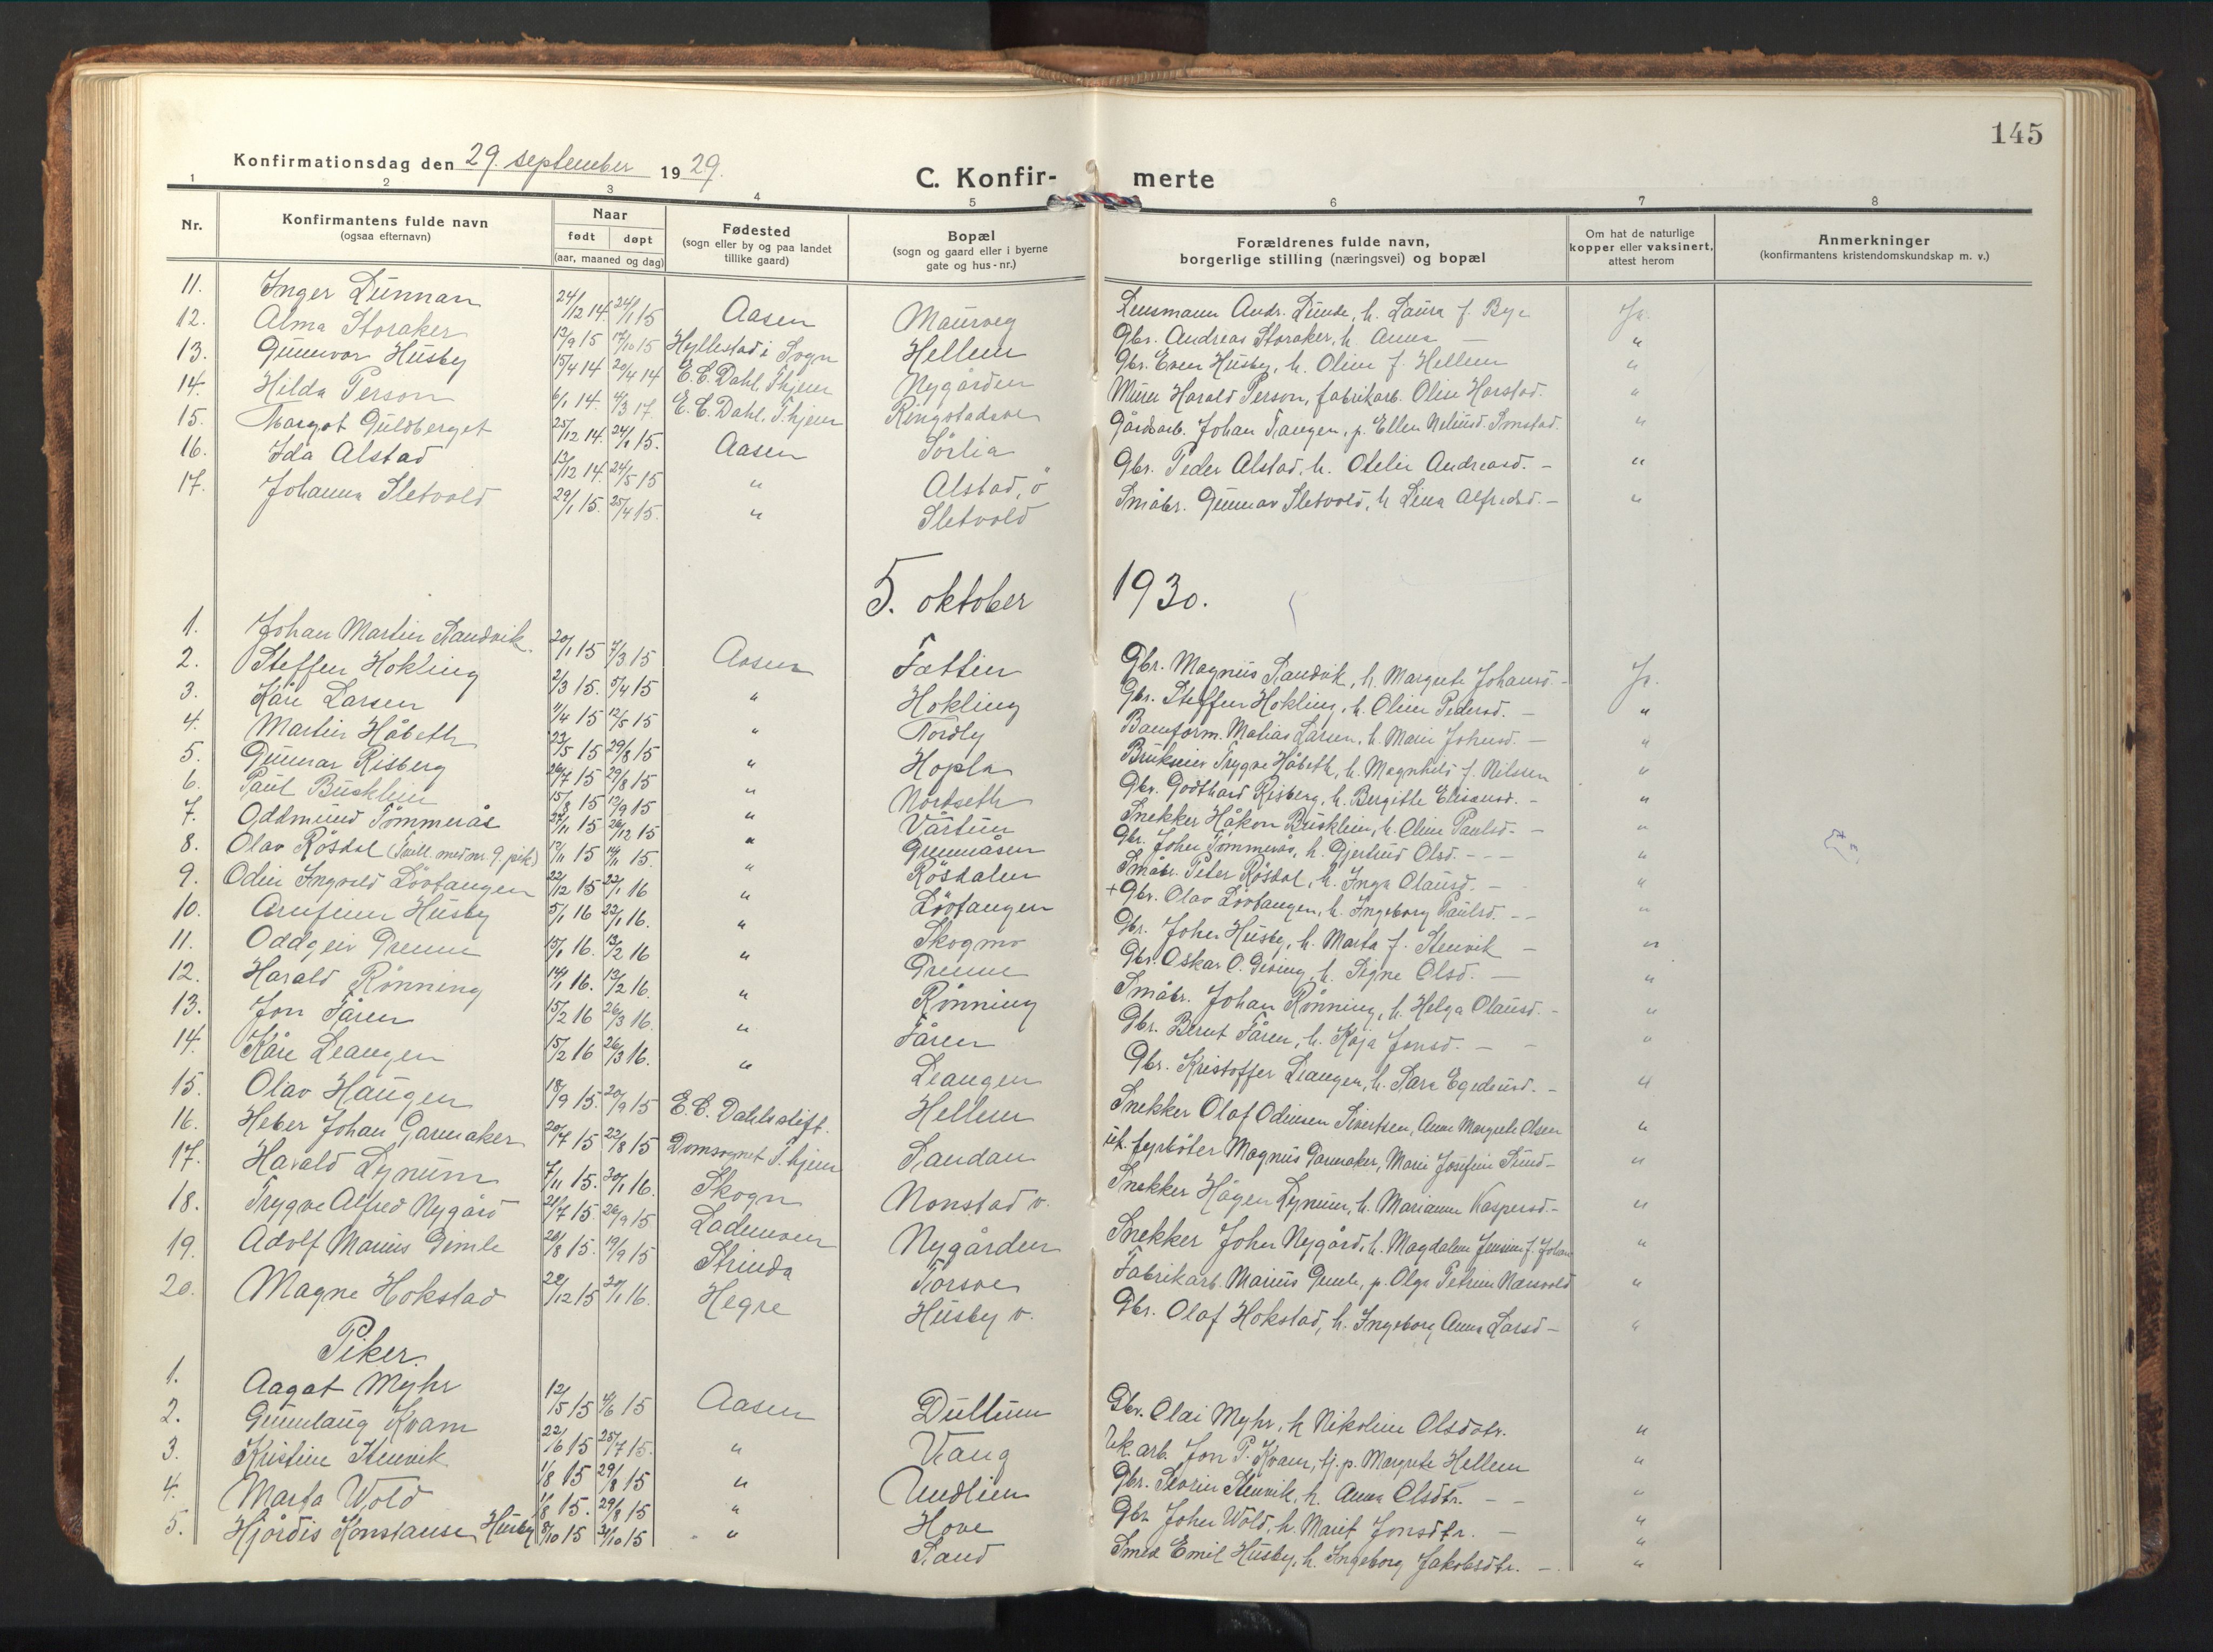 145
Konfirmationsdag den 29. september 1929.
C. Konfir- merte
1 2 3 4 5 6 7 8
Nr.
Konfirmantens fulde navn
(ogsaa efternavn)
Naar
født døpt
(aar, maaned og dag)
Fødested
(sogn eller by og paa landet
tillike gaard)
Bopæl
(sogn og gaard eller i byerne
gate og hus-nr.)
Forældrenes fulde navn,
borgerlige stilling (næringsvei) og bopæl
Om hat de naturlige
kopper eller vaksinert,
attest herom
Anmerkninger
(konfirmantens kristendomskundskap m. v.)
11. Inger Lünnan 24/12 14. 24/1 15 Aasen Maurveg Lensmann Andr. Lünde, h. Laura f. Bye Ja.
12. Alma Storaker 12/9 15 17/10 15 Hyllestad i Sogn Hellem Gbr. Andreas Storaker, h. Anna — "
13. Gunnvor Husby 15/4 14 20/4 14 E. C. Dahl, Thjem Nygården Gbr. Even Husby, h. Oline f. Hellem "
14. Hilda Person 6/1 14. 4/3 17. E. C. Dahl, Thjem Ringstadsve Murer Harald Person, fabrikarb. Oline Harstad. "
15. Margot Guldberget 25/12 14. 24/1 15. Aasen Sørlia Gårdsarb. Johan Tangen, p. Ellen Nelüsd. Ronstad. "
16. Ida Alstad 13/12 14. 24/5 15 " Alstad, ö Gbr. Peder Alstad, h. Otelie Andreasd. - "
17. Johanna Sletvold 29/1 15. 25/4 15. " Sletvold Småbr. Gunnar Sletvold, h Lina Alfredsd. - "
5. oktober 1930.
1. Johan Martin Sandvik. 20/1 15 7/3 15 Aasen Fættin Gbr. Magnus Sandvik, h. Margrete Johansd. - Ja.
2. Steffen Hokling 2/3 15. 5/4 15 " Hokling Gbr. Steffen Hokling, h. Oline Pedersd. - "
3. Kåre Larsen 11/4 15 12/5 15 " Nordly Baneform. Matias Larsen, h. Marie Johnsd. - "
4. Martin Håbeth 23/5 15 29/8 15 " Hopla Brukeier Trygve Håbeth, h. Magnhild f. Nilssen "
5. Gunnar Risberg 26/7 15 29/8 15 " Nordseth Gbr. Godthard Risberg, h. Bergitte Eliseusd. - "
6. Paul Bucklein 15/8 15 12/9 15 " Vårtun Snekker Håkon Bucklein, h. Oline Paulsd. - "
7. Oddmund Tömmerås 27/11 15 26/12 15 " Grunnåsen Gbr. Johen Tömmerås, h. Gjertrud Olsd. - - - "
8. Olav Rösdal (Tvill. med nr. 9. pik.) 13/11 15 14/11 15. " Rösdalen Småbr. Peter Rösdal, h. Inga Olausd. - "
9. Odin Ingvald Lövtangen 22/12 15 22/1 16 " Lövtangen + Gbr. Olav Lövtangen, h. Ingeborg Paulsd. - - "
10. Arnfinn Husby 5/1 16 22/1 16. " Skogmo Gbr. Johen Husby, h. Marta f. Stenvik - "
11. Oddgeir Grenne 15/1 16. 13/2 16 " Grenne Gbr. Oskar O. Grening, h. Signe Olsd. - "
12. Harald Rönning 14/1 16. 13/2 16. " Rönning Småbr. Johan Rönning, h. Helga Olausd. - "
13. Jon Fåren 15/2 16 26/3 16. " Fåren Gbr. Bernt Fåren, h. Kaja Jonsd. - - "
14. Kåre Leangen 15/2 16 26/3 16. " Leangen Gbr. Kristoffer Leangen, h. Sara Egediusd. - "
15. Olav Haugen 18/9 15. 20/9 15 E. C. Dahls stift. Hellem Snekker Olaf Odinsen Sivertsen, Anne Margrete Olsen "
16. Heber Johan Garnaker 20/7 15 22/8 15 Domsognet T.hjem Sandan uk. fyrböter Magnus Garnaker, Marie Josefine Sund- "
17. Harald Lynum 7/11 15. 30/1 16. Skogn Nonstad v. Snekker Hågen Lynum, h. Marianne Kaspersd. - "
18. Trygve Alfred Nygård 21/7 15. 26/9 15 Lademoen Nygården Snekker Johen Nygård, h. Magdalene Jensine f. Johan "
19. Adolf Marius Gimle 26/8 15. 19/9 15 Strinda Torsve Fabrikarb. Marius Gimle, p. Olga Petrine Næsvold "
20. Magne Hokstad 22/12 15 30/1 16. Hegre Husby v. Gbr. Olaf Hokstad, h. Ingeborg Anna Larsd - "
Piker.
1. Aagot Myhr 12/5 15 4/6 15 Aasen Dullum Gbr. Olai Myhr, h Nikoline Olsdatr. "
2. Gunnlaug Kvam 22/6 15 25/7 15. " Vang Uk. arb. Jon P. Kvam, tj. p. Margrete Hellem "
3. Kristine Stenvik 1/8 15 29/8 15 " Undlien Gbr. Severin Stenvik, h. Anna Olsdtr. - - "
4. Marta Wold 11/8 15. 29/8 15 " Hove Gbr. Johen Wold, h. Marit Jonsdtr. - "
5. Hjördis Konstanse Husby 8/10 15 31/10 15 " Sand Smed Emil Husby, h. Ingeborg Jakobsdtr. - "